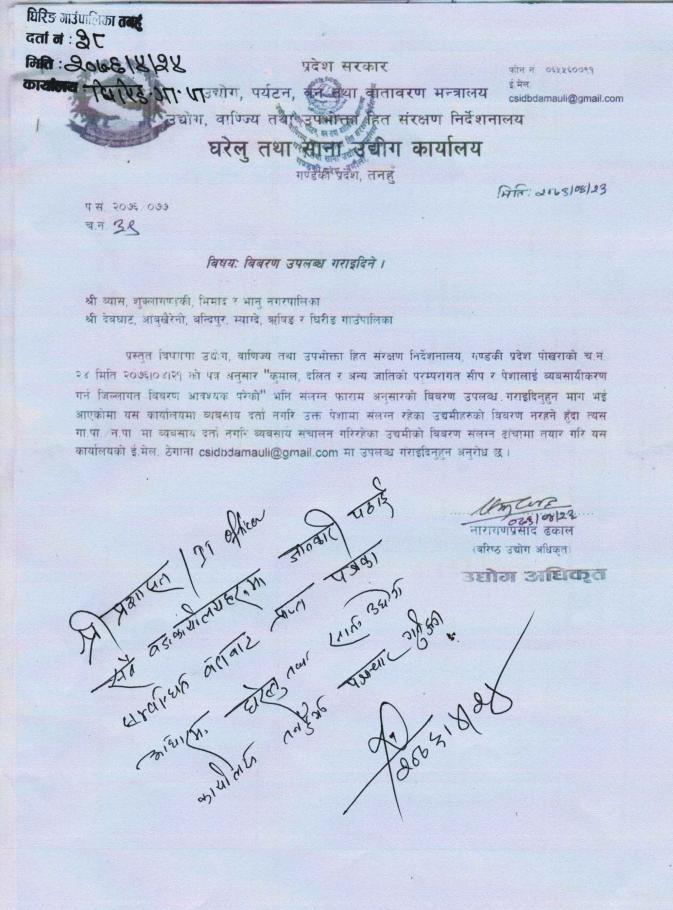 घिरिङ गाउँपालिका तनहुँ
दर्ता नं : ३८
मिति : २०७६/४/२४
कार्यालय
प्रदेश सरकार
उद्योग, पर्यटन, वन तथा वातावरण मन्त्रालय
उद्योग, वाणिज्य तथा उपभोक्ता हित संरक्षण निर्देशनालय
घरेलु तथा साना उद्योग कार्यालय
गण्डकी प्रदेश, तनहुँ
फोन नं ०६५५६००११
ई.मेल
csidbdamauli@gmail.com
मिति: २०७६/०४/२३
प.सं. २०७६/०७७
च.नं. ३९
विषय: बिबरण उपलब्ध गराइदिने ।
श्री ब्यास, शुक्लागण्डकी, भिमाद र भानु नगरपालिका
श्री देवघाट, आँबुखैरेनी, बन्दिपुर, म्याग्दे, ऋषिङ र घिरीङ गाउँपालिका
प्रस्तुत विषयमा उद्योग, वाणिज्य तथा उपभोक्ता हित संरक्षण निर्देशनालय, गण्डकी प्रदेश पोखराको च.नं.
२४ मिति २०७६।०४।२१ को पत्र अनुसार "कुमाल, दलित र अन्य जातिको परम्परागत सीप र पेशालाई ब्यबसायीकरण
गर्न जिल्लागत विबरण आवश्यक परेको" भनि संलग्न फाराम अनुसारको बिबरण उपलब्ध गराइदिनुहुन माग भई
आएकोमा यस कार्यालयमा ब्यबसाय दर्ता नगरि उक्त पेशामा संलग्न रहेका उद्यमीहरुको बिबरण नरहने हुँदा त्यस
गा.पा./न.पा. मा ब्यबसाय दर्ता नगरि ब्यबसाय संचालन गरिरहेका उद्यमीको बिबरण संलग्न ढाँचामा तयार गरि यस
कार्यालयको ई.मेल. ठेगाना csidbdamauli@gmail.com मा उपलब्ध गराइदिनुहुन अनुरोध छ ।
०७६/०४/२३
नारायणप्रसाद ढकाल
(बरिष्ठ उद्योग अधिकृत)
उद्योग अधिकृत
श्री प्रशासन / IT officer
सबै वडाकार्यालयहरुमा जानकारी पठाई
सम्बन्धित वडाबाट प्राप्त पत्रका
आधारमा घरेलु तथा साना उद्योग
कार्यालय तनहुँमा पत्राचार गर्नुहुन
२०७६/४/२४